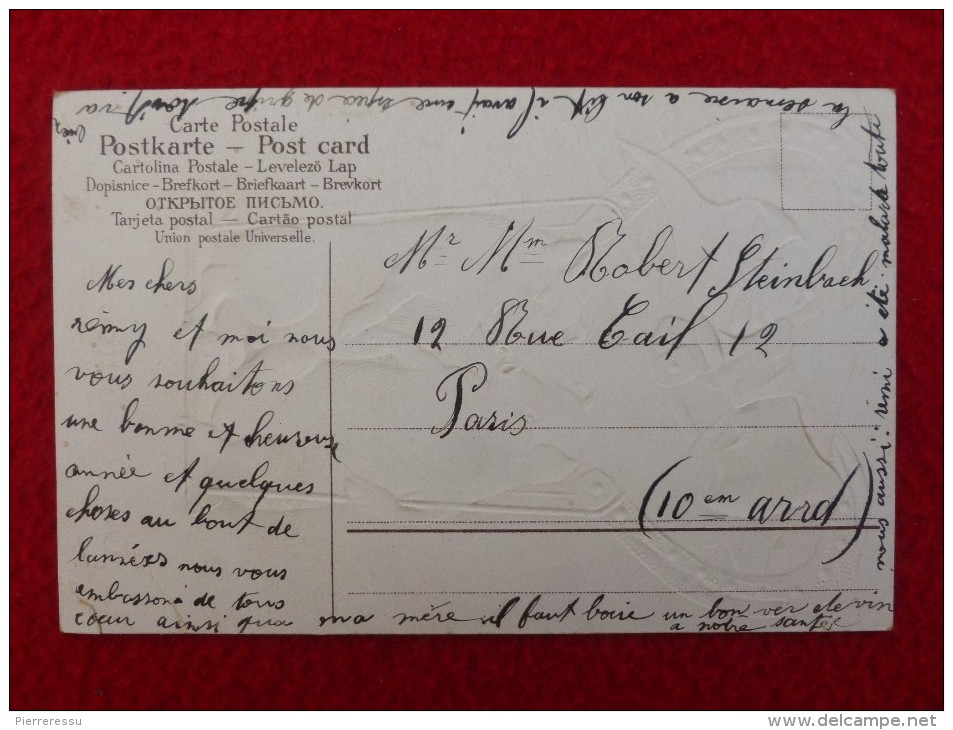 Carte Postale
Postkarte – Post card
Cartolina Postale – Levelező Lap
Dopisnice – Brefkort – Briefkaart – Brevkort
ОТКРЫТОЕ ПИСЬМО.
Tarjeta postal — Cartão postal
Union postale Universelle.
Mr Mm Robert Steinbach
12 Rue Cail 12
Paris
(10em arrd)
Mes chers
rémy et moi nous
vous souhaitons
une bonne et heureuse
année et quelques
choses au bout de
lannées nous vous
embassons de tous
cœur ainsi qua ma mère il faut boire un bon ver de vin
a notre santée
nous aussi: rémi a été malade toute
la semaine a son lit il avait une de gripe
Pierreressu
www.delcampe.net